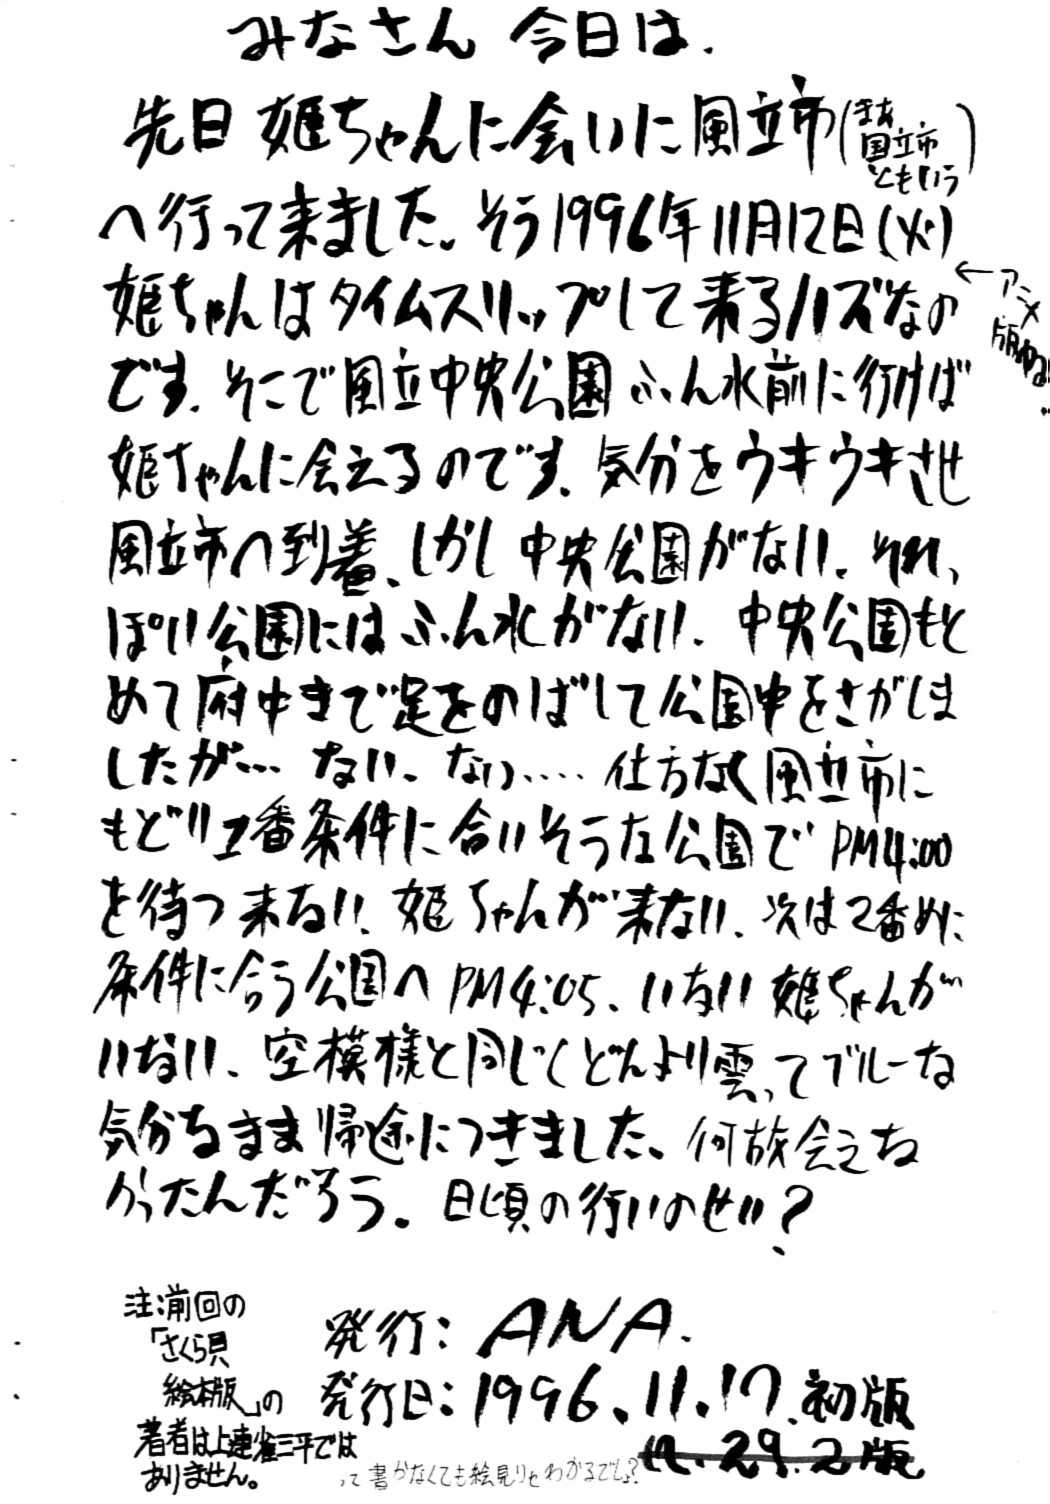 みなさん 今日は.
先日 姫ちゃんに会いに風立市(まあ国立市ともいう)
へ行って来ました。そう1996年11月12日(火)
←アニメ版ゆる!!
姫ちゃんはタイムスリップして来るハズなの
です. そこで風立中央公園 ふん水前に行けば
姫ちゃんに会えるのです、気分をウキウキさせ
風立市へ到着、しかし中央公園がない、それっ
ぽい公園にはふん水がない、中央公園もと
めて府中まで足をのばして公園中をさがしま
したが… ない、ない…… 仕方なく風立市に
もどり1番条件に合いそうな公園で PM4:00
を待つ 来ない、姫ちゃんが来ない、次は2番めに
条件に合う公園へ PM4:05、いない姫ちゃんが
いない、空模様と同じくどんより雲ってブルーな
気分なまま帰途につきました、何故会えな
かったんだろう。日頃の行いのせい?
注:前回の
「さくら貝
絵本版」の
著者は上連雀三平では
ありません。
発行:ANA.
発行日:1996.11.17.初版
12.29.2版
って書かなくても絵見りゃわかるでしょ?